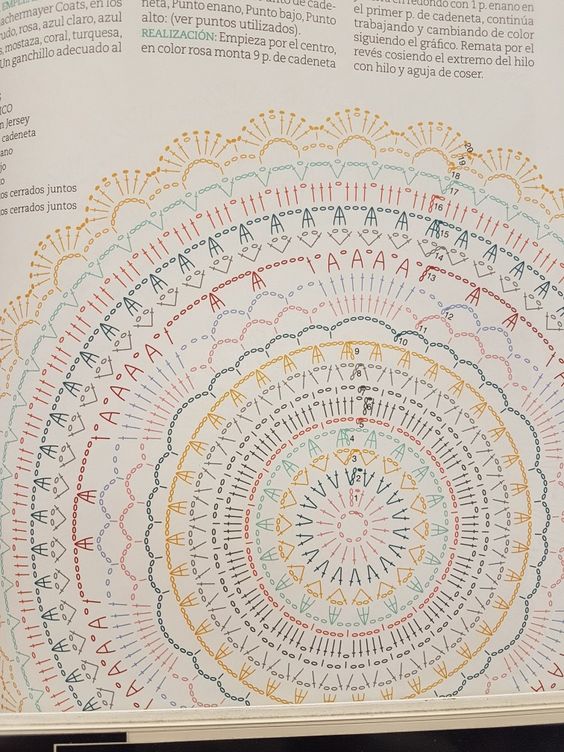 achermayer Coats, en los
udo, rosa, azul claro, azul
, mostaza, coral, turquesa,
Un ganchillo adecuado al
neta, Punto enano, Punto bajo, Punto
alto: (ver puntos utilizados).
REALIZACIÓN: Empieza por el centro,
en color rosa monta 9 p. de cadeneta
en redondo con 1 p. enano en
el primer p. de cadeneta, continúa
trabajando y cambiando de color
siguiendo el gráfico. Remata por el
revés cosiendo el extremo del hilo
con hilo y aguja de coser.
ICO
n Jersey
cadeneta
ano
jo
to
os cerrados juntos
os cerrados juntos
20
19
18
17
16
15
14
13
12
11
10
9
8
7
6
5
4
3
2
1